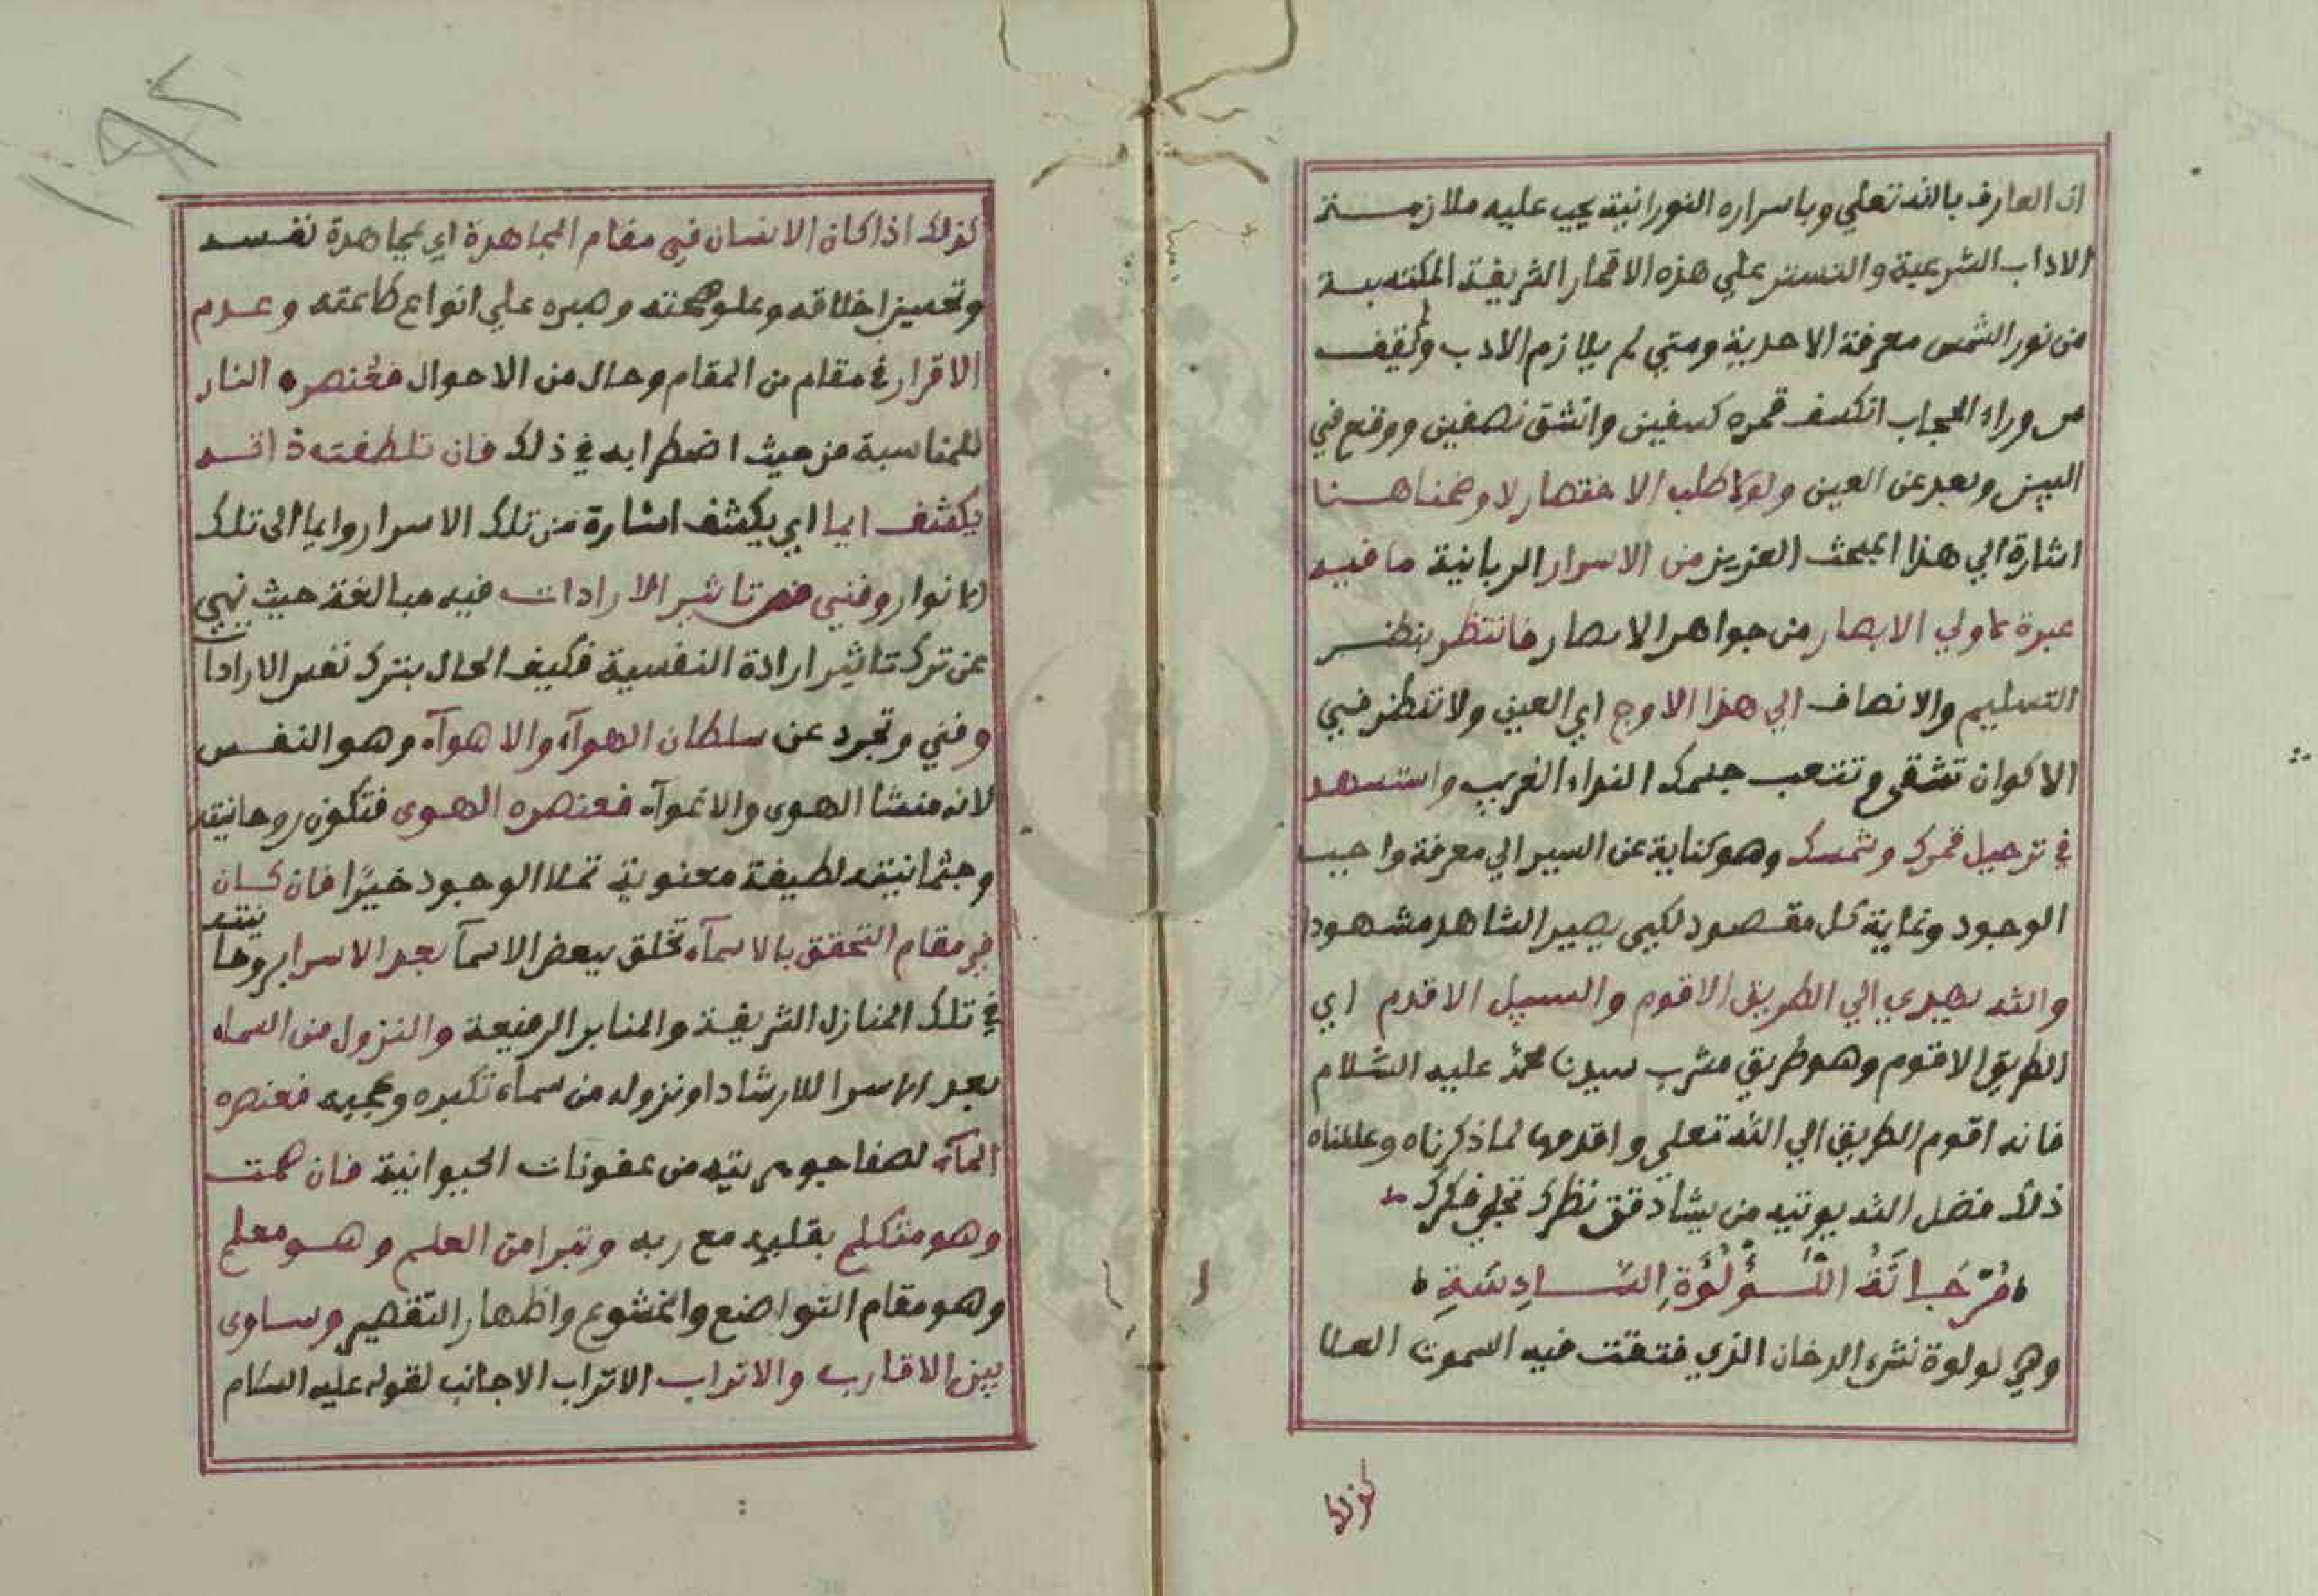 ان العارف بالله تعلي وباسراره النورانية يجب عليه ملازمة
الاداب الشرعية والتستر علي هذه الاقمار الشريفة المكتسبة
من نور الشمس معرفة الاحدية ومتي لم يلازم الادب ولم يقف
من وراء الحجاب انكسف قمره كسفين وانشق نصفين ووقع في
البين وبعد عن العين ولولا طلب الاختصار لاوضحنا هنا
اشارة الي هذا المبحث العزيز من الاسرار الربانية ما فيه
عبرة لاولي الابصار من جواهر الابصار فانتظر بنظر
التسليم والانصاف الي هذا الاوج اي العين ولا تنظر في
الاكوان تشقي وتتعب جسمك النداء الغريب واستسعد
في ترحيل قمرك وشمسك وهو كناية عن السير الي معرفة واجب
الوجود وغاية كل مقصود لكي يصير الشاهد مشهود
والله يهدي الي الطريق الاقوم والسبيل الاقدم اي
الطريق الاقوم وهو طريق مشرب سيدنا محمد عليه السلام
فانه اقوم الطريق الي الله تعلي واقدمها لما ذكرناه وعلمناه
ذلك فضل الله يوتيه من يشا دقق نظرك تجلي فكرك
مُرْجَانَةُ اللُّؤْلُؤَةِ السَّادِسَةِ
وهي لولوة نشر الدخان الذي فتقت فيه السموت العلا
كذلك
كذلك اذا كان الانسان في مقام المجاهدة اي بمجاهدة نفسه
وتحسين اخلاقه وعلو همته وصبره علي انواع طاعته وعدم
الاقرار في مقام من المقام وحال من الاحوال فعنصره النار
للمناسبة من حيث اضطرابه في ذلك فان تلطفت ذاته
يكشف ايما اي يكشف اشارة من تلك الاسرار وايما الى تلك
الانوار وفني من تاثير الارادات فيه مبالغة حيث نهي
عن ترك تاثير ارادة النفسية فكيف الحال بترك نفس الارادات
وفني وتجرد عن سلطان الهوآء والاهوآء وهو النفس
لانه منشا الهوى والاغوآء فعنصره الهوى فتكون روحانيته
وجثمانيته لطيفة معنوية تملا الوجود خيرًا فان كان
في مقام التحقق بالاسمآء تخلق ببعض الاسمآ بعد الاسرا بروحانيته
في تلك المنازل الشريفة والمنابر الرفيعة والنزول من السماء
بعد الاسرا للارشاد او نزوله من سمآء تكبره وعجبه فعنصره
المآء لصفا جوهريته من عفونات الحيوانية فان صمت
وهو متكلم بقلبه مع ربه وتبرا من العلم وهو معلم
وهو مقام التواضع والخشوع واظهار التقصير وساوى
بين الاقارب والاتراب الاتراب الاجانب لقوله عليه السلام